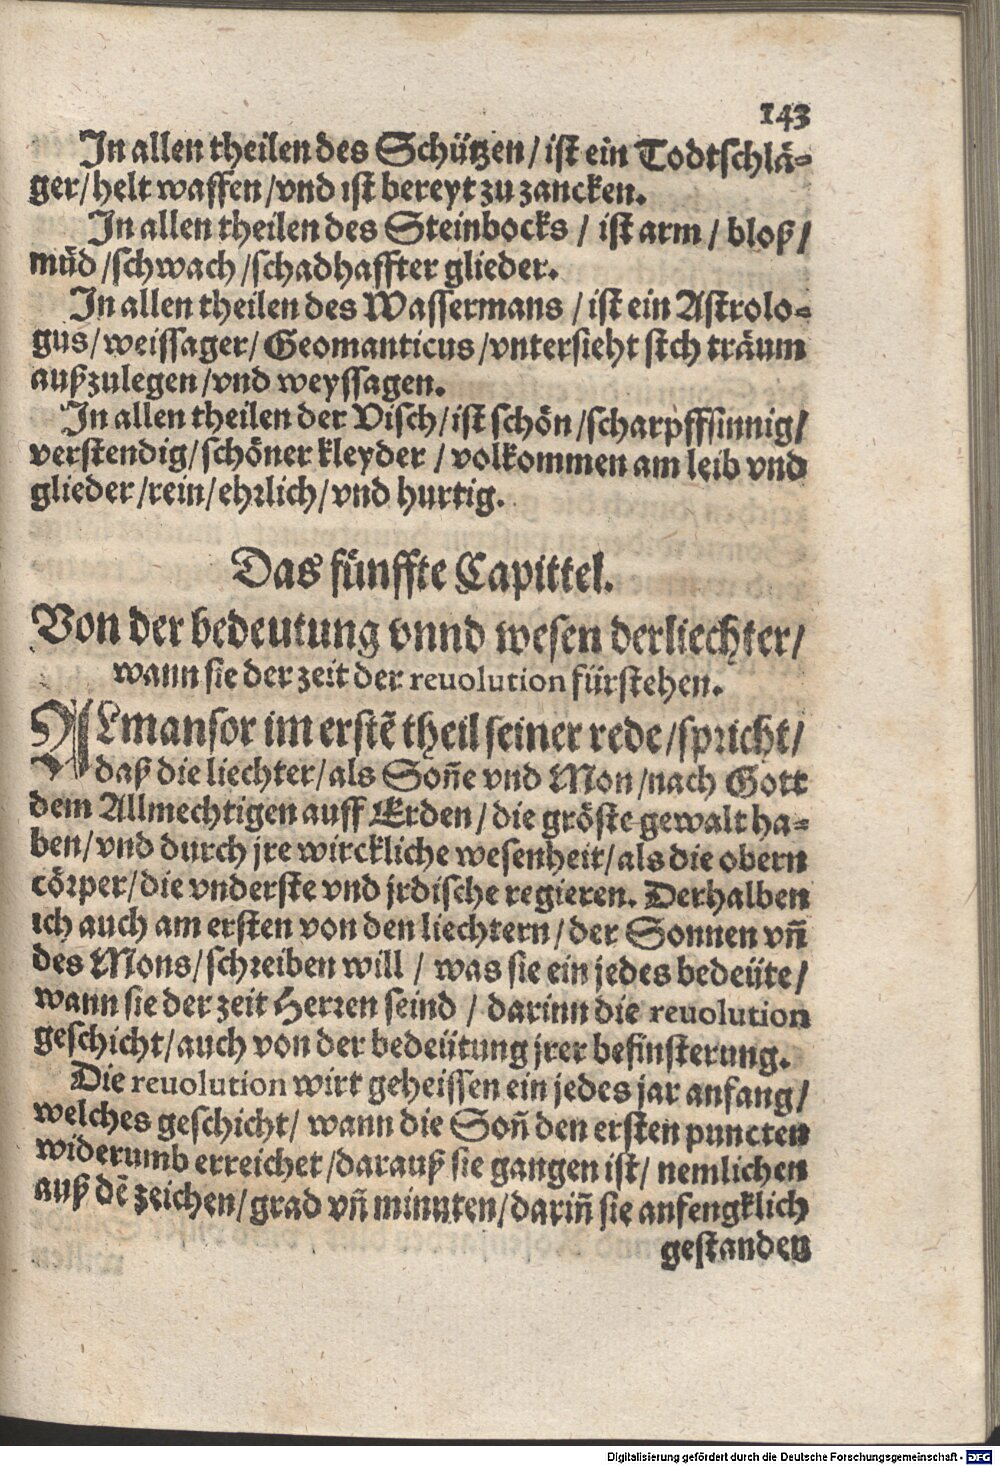 143
In allen theilen des Schützen / ist ein Todtschlä-
ger/helt waffen/vnd ist bereyt zu zancken.
In allen theilen des Steinbocks / ist arm / bloß/
müd/schwach/schadhaffter glieder.
In allen theilen des Wassermans / ist ein Astrolo-
gus/weissager/Geomanticus/vntersteht sich träum
außzulegen/vnd weyssagen.
In allen theilen der Visch/ist schön/scharpffsinnig/
verstendig/schöner kleyder / volkommen am leib vnd
glieder/rein/ehrlich/vnd hurtig.
Das fünffte Capittel.
Von der bedeutung vnnd wesen der liechter/
wann sie der zeit der reuolution fürstehen.
ALmansor im erstẽ theil seiner rede/spricht/
daß die liechter/als Soñe vnd Mon/nach Gott
dem Allmechtigen auff Erden/die gröste gewalt ha-
ben/vnd durch jre wirckliche wesenheit/als die obern
cörper/die vnderste vnd jrdische regieren. Derhalben
ich auch am ersten von den liechtern/der Sonnen vñ
des Mons/schreiben will / was sie ein jedes bedeüte/
wann sie der zeit Herren seind / darinn die reuolution
geschicht/auch von der bedeütung jrer befinsterung.
Die reuolution wirt geheissen ein jedes jar anfang/
welches geschicht/ wann die Soñ den ersten puncten
widerumb erreichet/darauß sie gangen ist/ nemlichen
auß dẽ zeichen/grad vñ minuten/dariñ sie anfengklich
gestanden
Digitalisierung gefördert durch die Deutsche Forschungsgemeinschaft - DFG